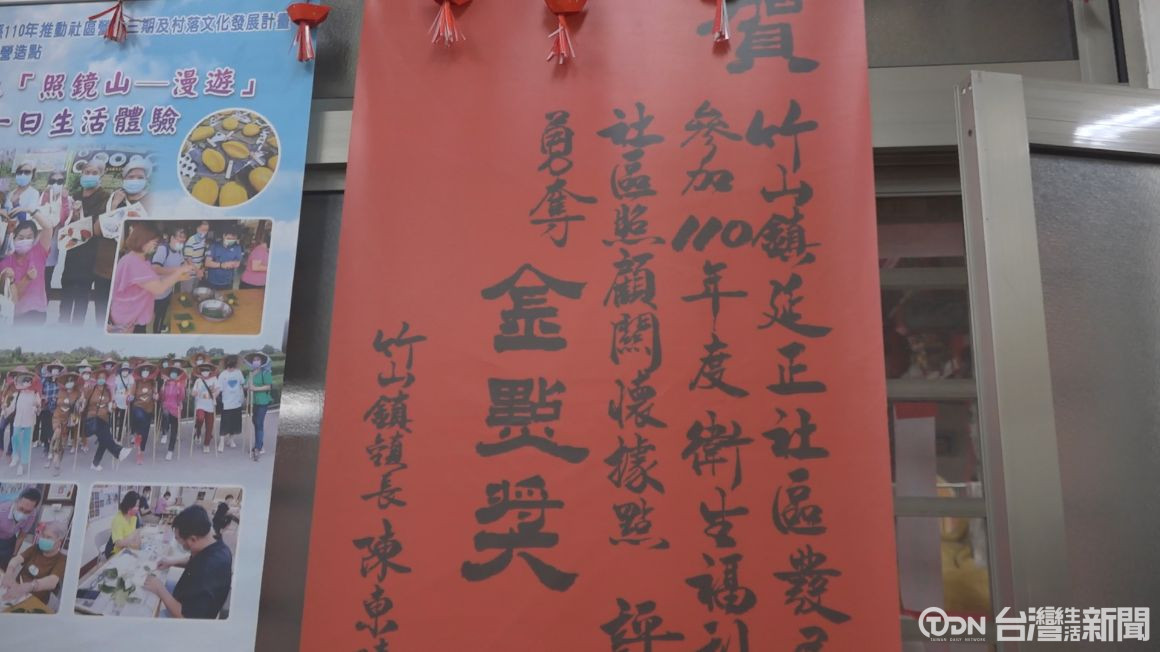 110年推動社區營造三期及村落文化發展計畫
營造點
「照鏡山—漫遊」
一日生活體驗
賀
竹山鎮延正社區發
參加110年度衛生福利
社區照顧關懷據點 評
勇奪
金點獎
竹山鎮鎮長 陳東
TDN 台灣生活新聞
TAIWAN DAILY NETWORK